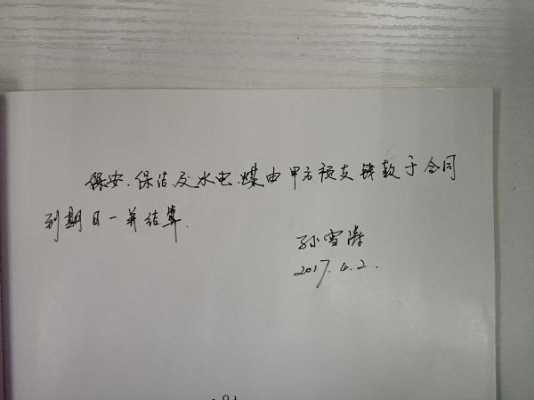 保安、保洁及水电、煤由甲方预支钱款于合同
到期日一并结算.
孙雪
2017.6.2.